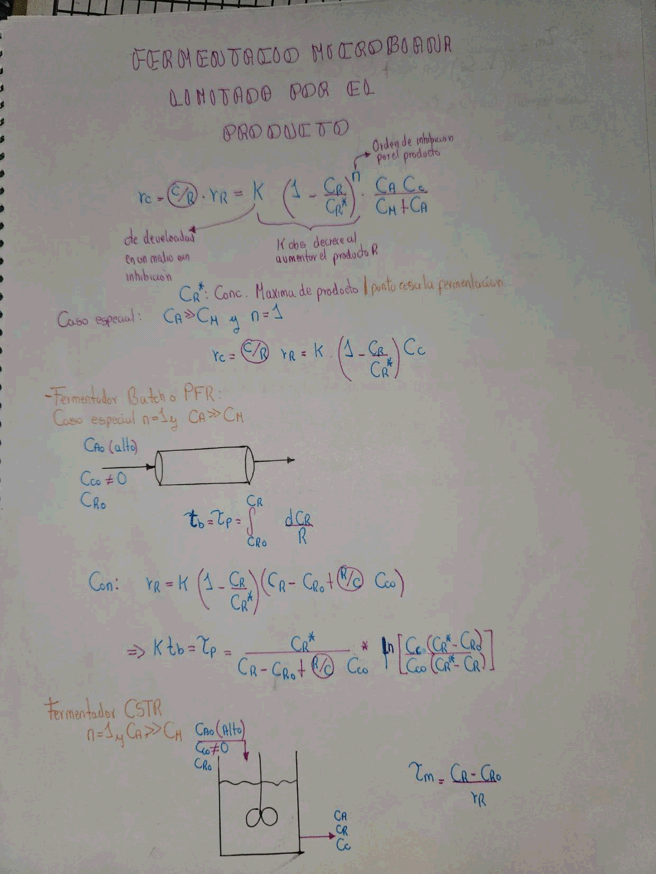 FERMENTACIO MICROBIANA
LIMITADA POR EL
PRODUCTO
Orden de inhibicion
por el producto
rc = (C/R) · rR = K (1 - CR/CR*)^n · CA Cc/CM + CA
de develocidad
en un medio sin
inhibición
K obs decrece al
aumentar el producto R
CR*: Conc. Maxima de producto / punto cesa la fermentacion
Caso especial: CA >> CM y n=1
rc = (C/R) rR = K · (1 - CR/CR*) Cc
-Fermentador Batch o PFR:
Caso especial n=1 y CA >> CM
CAo (alto)
Cco ≠ 0
CRo
tb = τp = ∫ CRo CR dCR/R
Con: rR = K (1 - CR/CR*) (CR - CRo + (R/C) Cco)
⇒ K tb = τp = CR*/CR - CRo + (R/C) Cco * ln [Cc (CR* - CRo)/Cco (CR* - CR)]
Fermentador CSTR
n=1 y CA >> CM
CAo (Alto)
Cco ≠ 0
CRo
τm = CR - CRo/rR
CA
CR
Cc